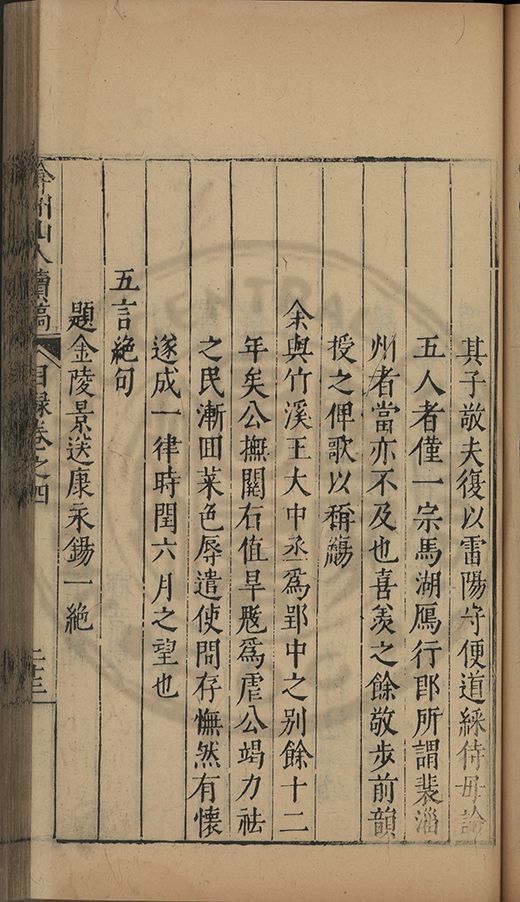 其子敬夫復以雷陽守便道綵侍毋論
五人者僅一宗馬湖鴈行郎所謂裴淄
州者當亦不及也喜羡之餘敬步前韻
授之俾歌以稱觴
余與竹溪王大中丞爲郢中之别餘十二
年矣公撫關右值旱魃爲虐公竭力祛
之民漸回菜色辱遣使問存憮然有懷
遂成一律時閏六月之望也
五言絶句
題金陵景送康永錫一絶
弇州山人續稿
目録卷之四
二十三